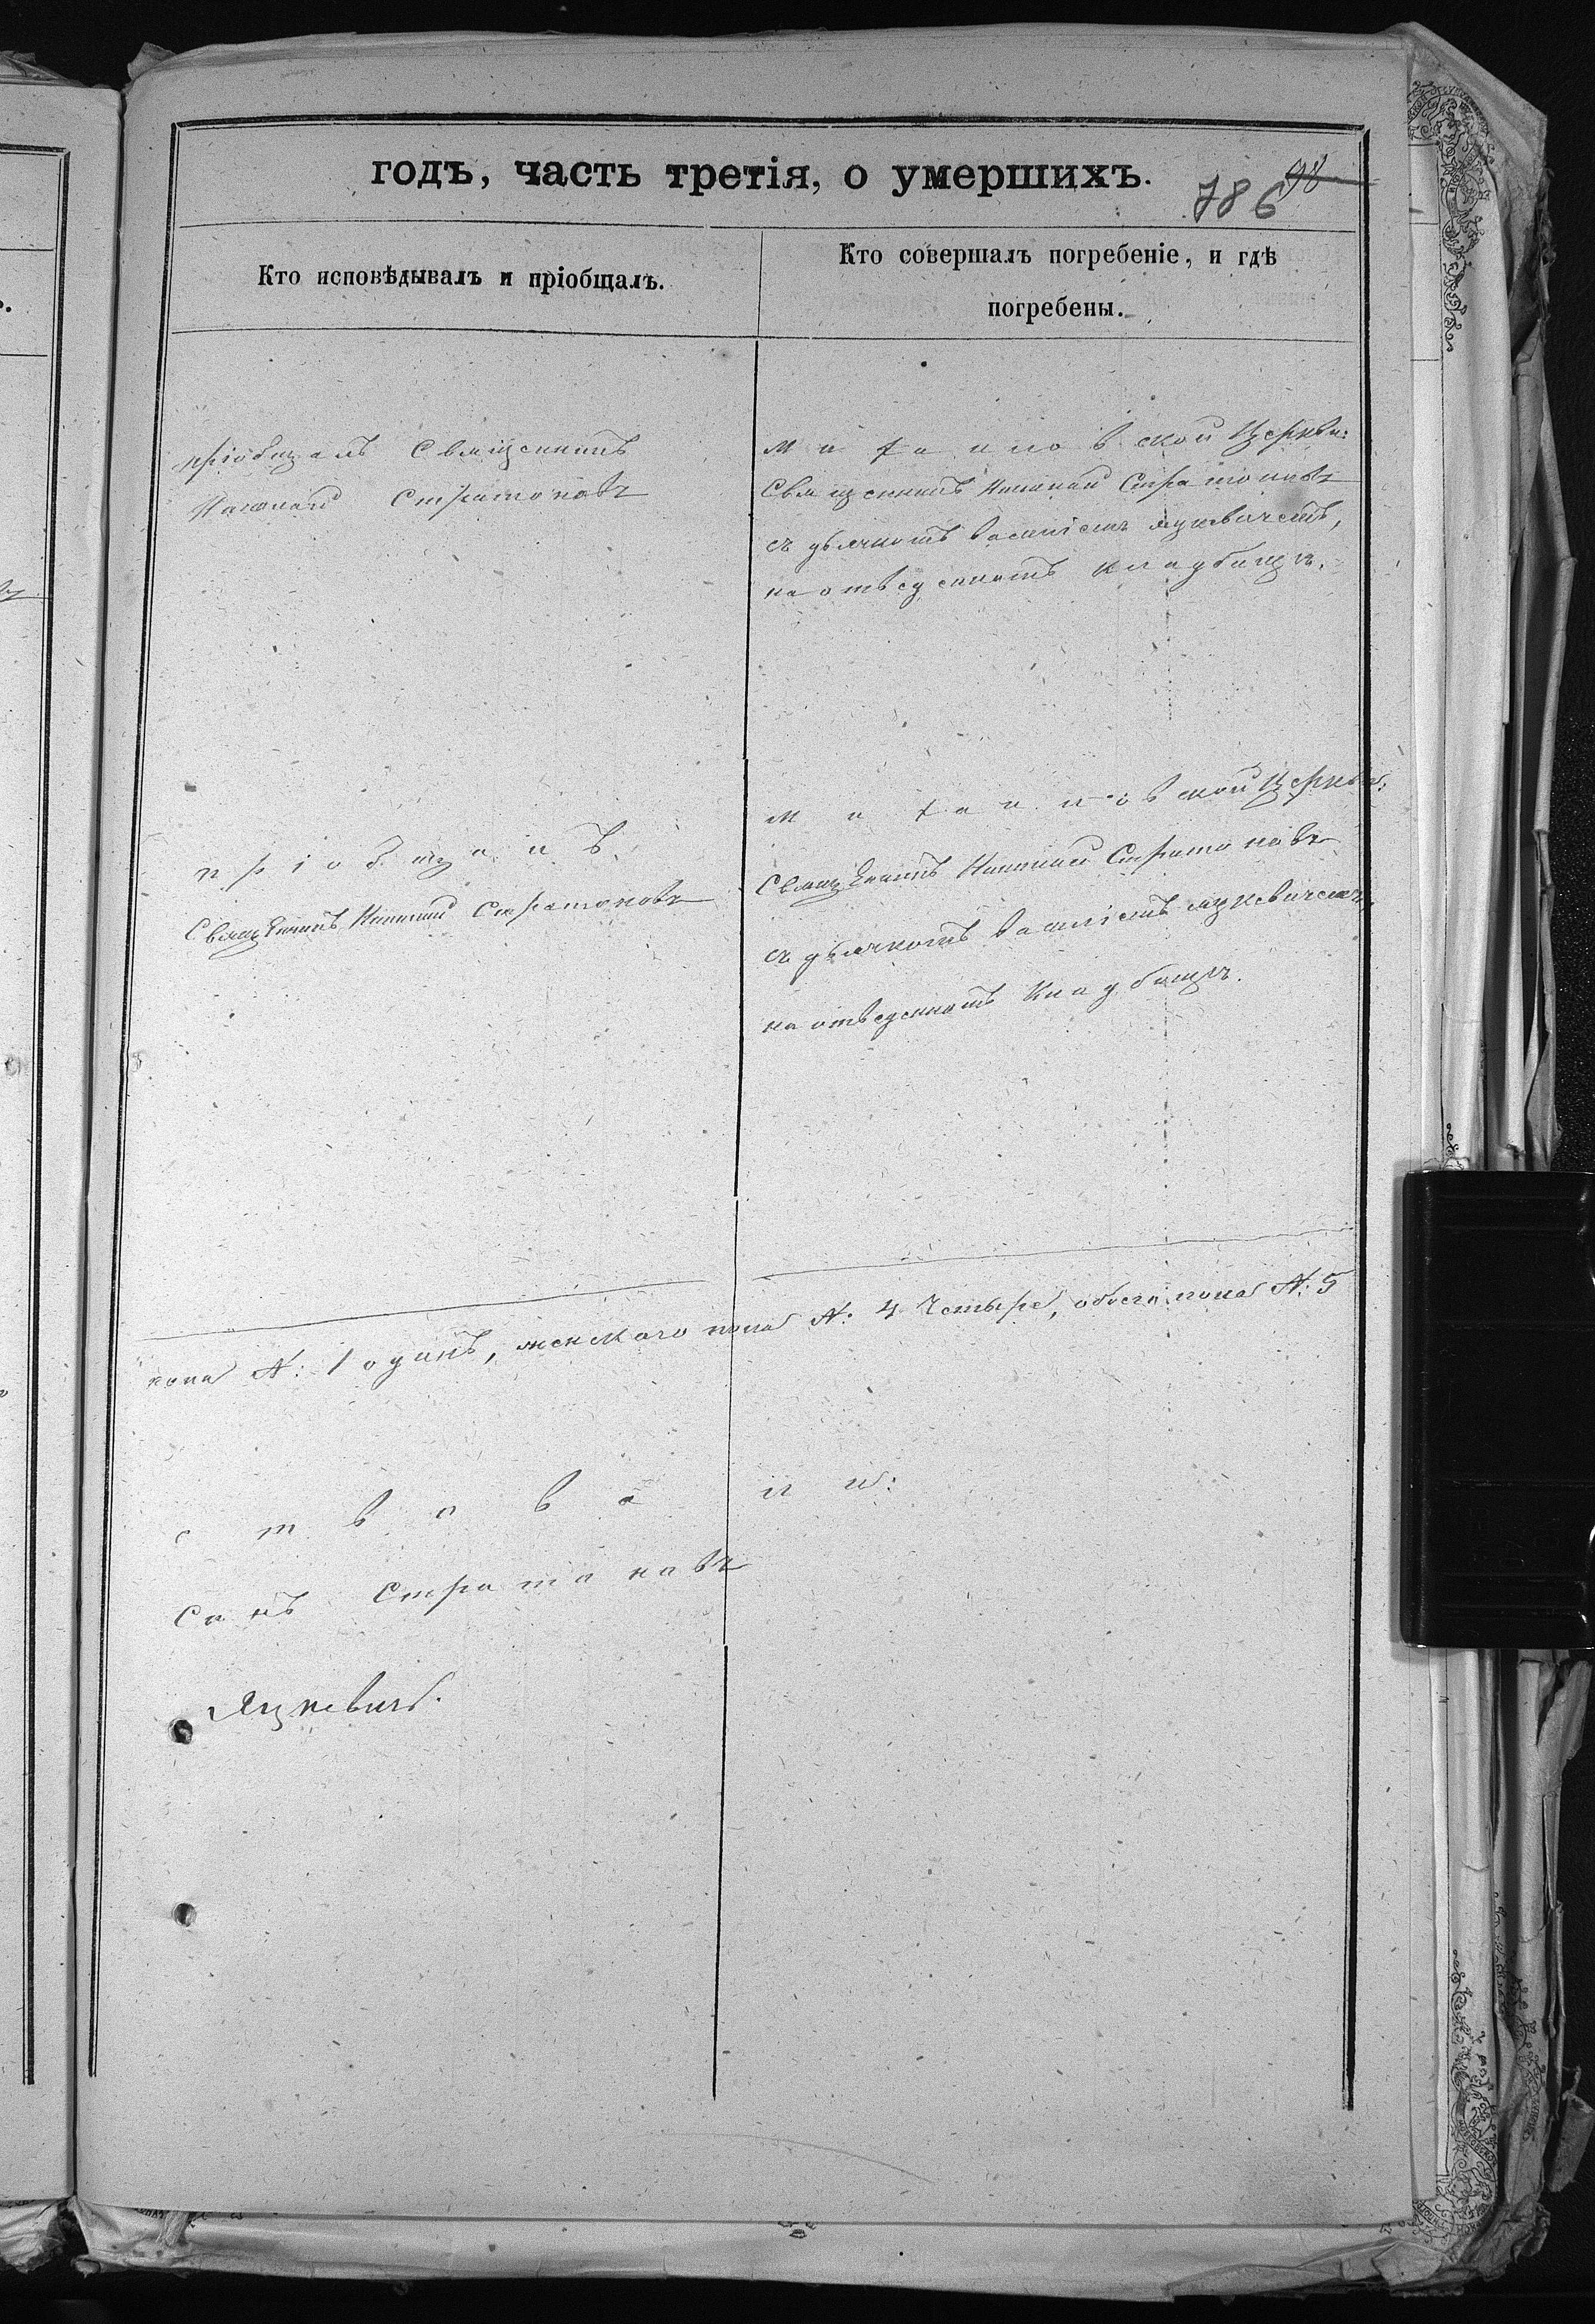 годъ, часть третія, о умершихъ.
786 98
Кто исповѣдывалъ и пріобщалъ.
Кто совершалъ погребеніе, и гдѣ
погребены.
пріобщалъ Священникъ
Стратоновъ
ской Церкви:
Священникъ Стратоновъ
съ дьячкомъ Василіемъ Яцкевичемъ,
на отведенномъ кладбищѣ.
пріобщалъ
Священникъ Стратоновъ
ской Церкви:
Священникъ Стратоновъ
съ дьячкомъ Василіемъ Яцкевичемъ,
на отведенномъ кладбищѣ.
пола №: 1 одинъ, женскаго пола №: 4 Четыре, обоего пола №: 5
ствовали:
Стратоновъ
Яцкевичъ.